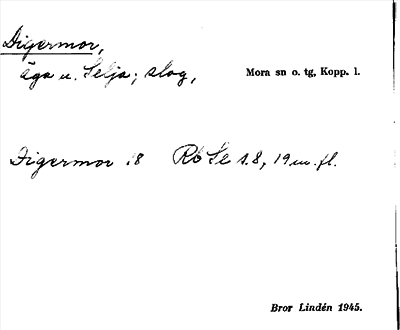 Digermor,
äga u. Selja; slog,
Mora sn o. tg, Kopp. l.
Digermor :8 Rb Se s.8, 19 m. fl.
Bror Lindén 1945.